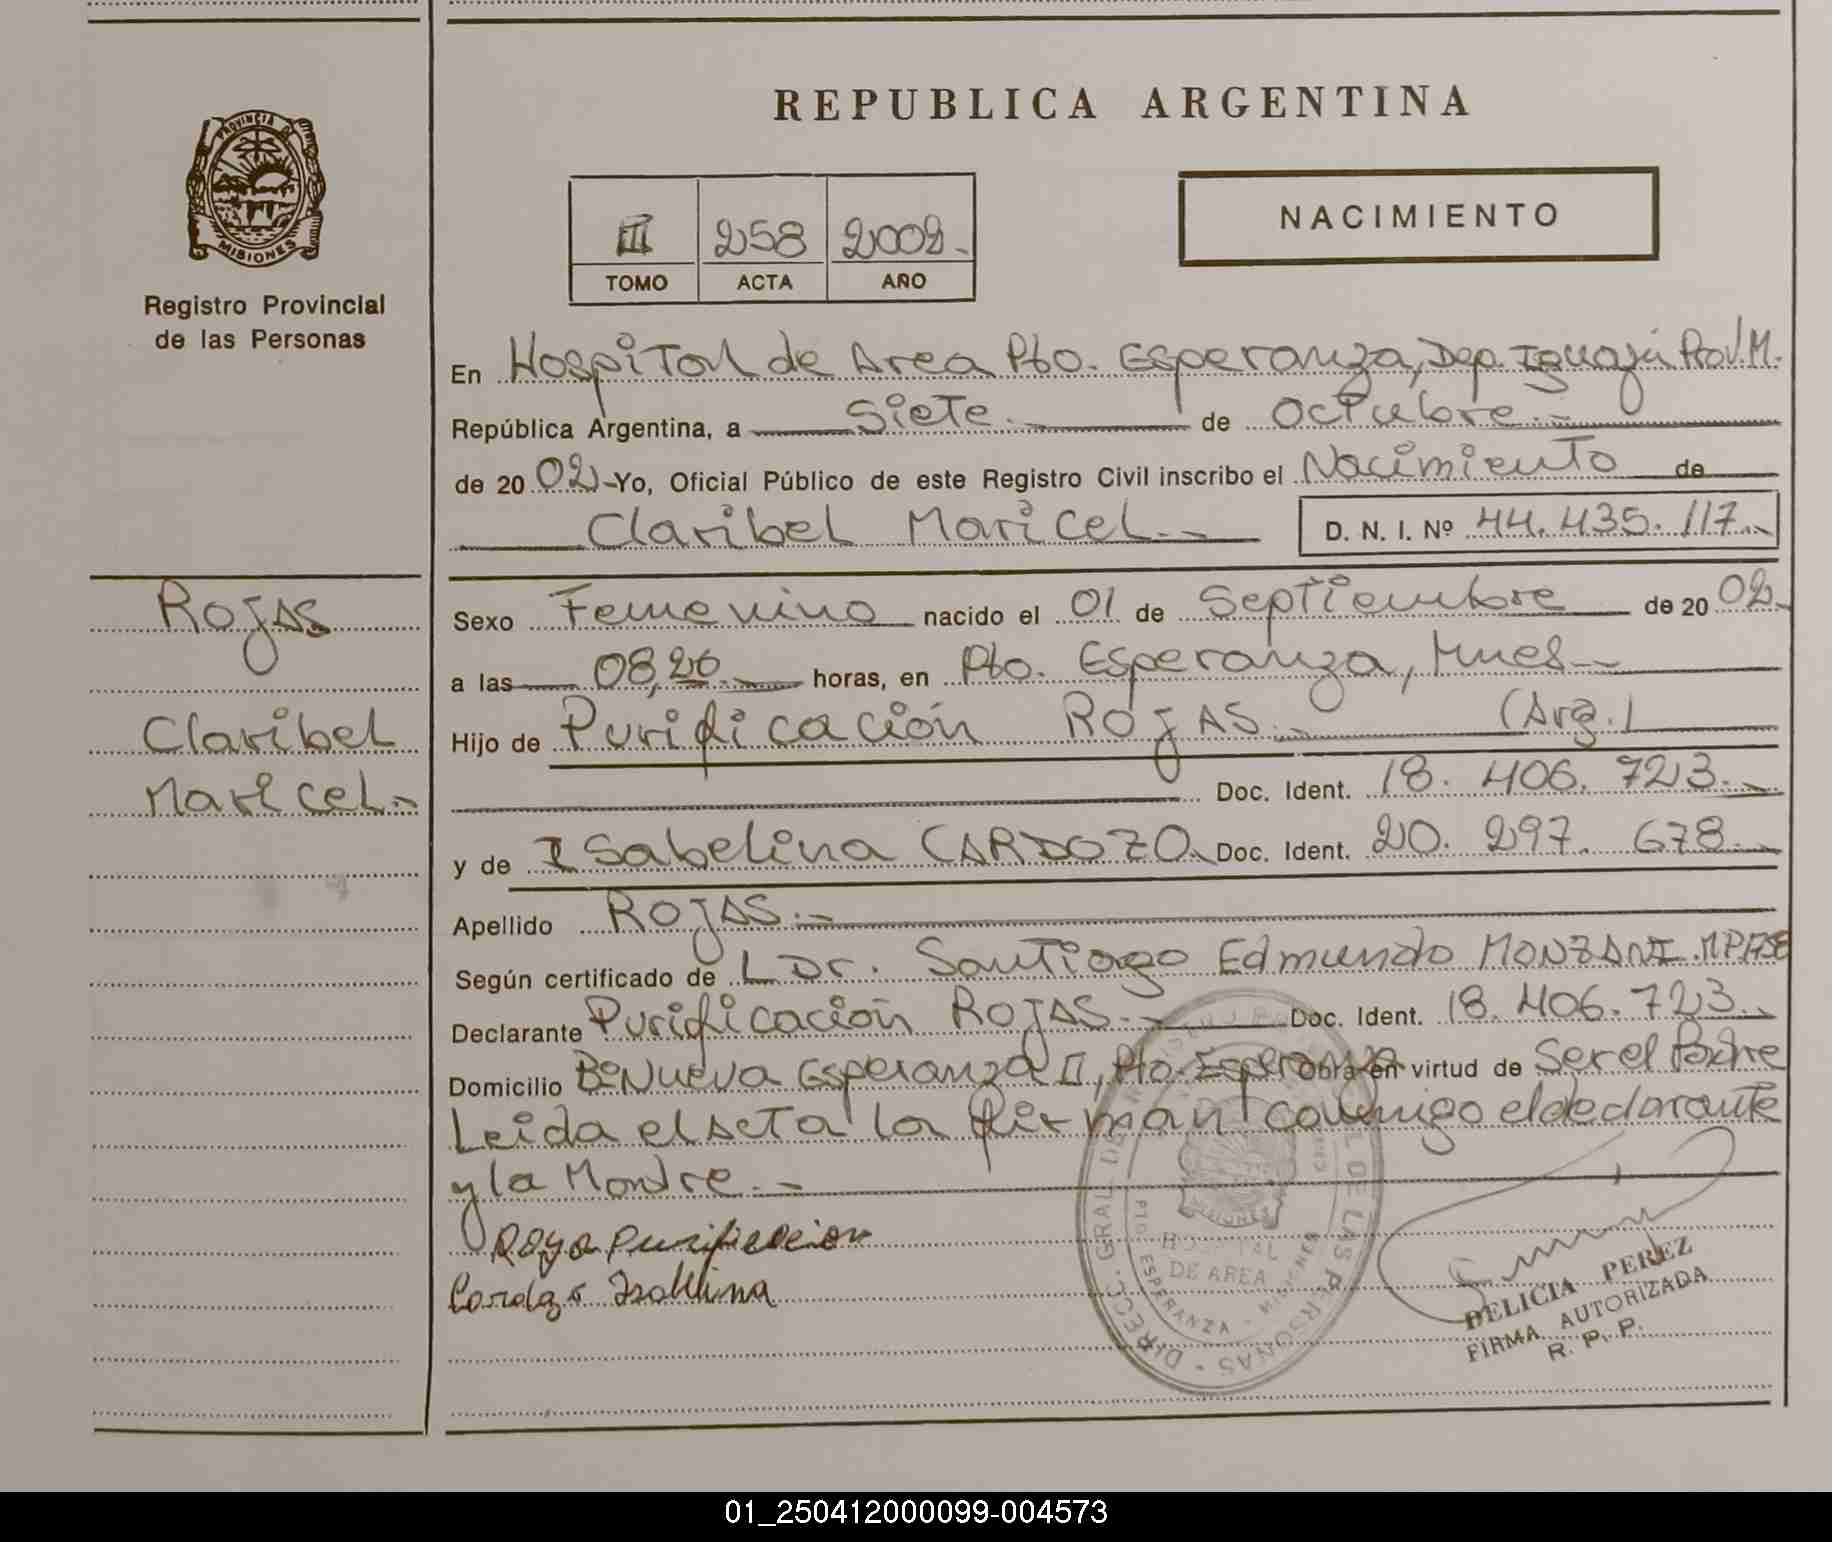 REPUBLICA ARGENTINA
PROVINCIA DE
MISIONES
Registro Provincial
de las Personas
III 258 2002.-
TOMO ACTA AÑO
NACIMIENTO
En Hospital de Area Pto. Esperanza, Dep. Iguazú Prov. M.
República Argentina, a Siete.- de Octubre.-
de 20 02 - Yo, Oficial Público de este Registro Civil inscribo el Nacimiento de
Claribel Maricel.- D. N. I. Nº 44.435.117.-
Rojas
Claribel
Maricel.-
Sexo Femenino nacido el 01 de Septiembre de 20 02.-
a las 08,20.- horas, en Pto. Esperanza, Mnes.-
Hijo de Purificación ROJAS.- (Arg.)
Doc. Ident. 18.406.723.-
y de Isabelina CARDOZO.- Doc. Ident. 20.297.678.-
Apellido ROJAS.-
Según certificado de Dr. Santiago Edmundo MONZANI. MP1758
Declarante Purificación ROJAS.- Doc. Ident. 18.406.723.-
Domicilio Bº Nueva Esperanza II, Pto. Esperanza Obra en virtud de Ser el Padre
Leida el acta la firman conmigo el declarante
y la Madre.-
Roja Purificacion
Cardozo Isabelina
DIRECC. GRAL. DE LAS PERSONAS
HOSPITAL
DE AREA
PTO. ESPERANZA - MISIONES
DELICIA PEREZ
FIRMA AUTORIZADA
R. P. P.
01_250412000099-004573